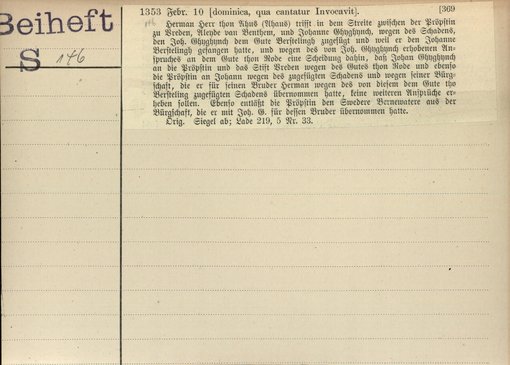 Beiheft
S 146
1353 Febr. 10 [dominica, qua cantatur Invocavit]. [369
Herman Herr thon Ahus (Ahaus) trifft in dem Streite zwischen der Pröpstin
zu Vreden, Aleyde van Benthem, und Johanne Ghyghynch, wegen des Schadens,
den Joh. Ghyghynch dem Gute Berstelingh zugefügt und weil er den Johanne
Berstelingh gefangen hatte, und wegen des von Joh. Ghyghynch erhobenen An-
spruches an dem Gute thon Rode eine Scheidung dahin, daß Johan Ghyghynch
an die Pröpstin und das Stift Vreden wegen des Gutes thon Rode und ebenso
die Pröpstin an Johann wegen des zugefügten Schadens und wegen seiner Bürg-
schaft, die er für seinen Bruder Herman wegen des von diesem dem Gute tho
Bersteling zugefügten Schadens übernommen hatte, keine weiteren Ansprüche er-
heben sollen. Ebenso entläßt die Pröpstin den Swedere Bernewatere aus der
Bürgschaft, die er mit Joh. G. für dessen Bruder übernommen hatte.
Orig. Siegel ab; Lade 219, 5 Nr. 33.